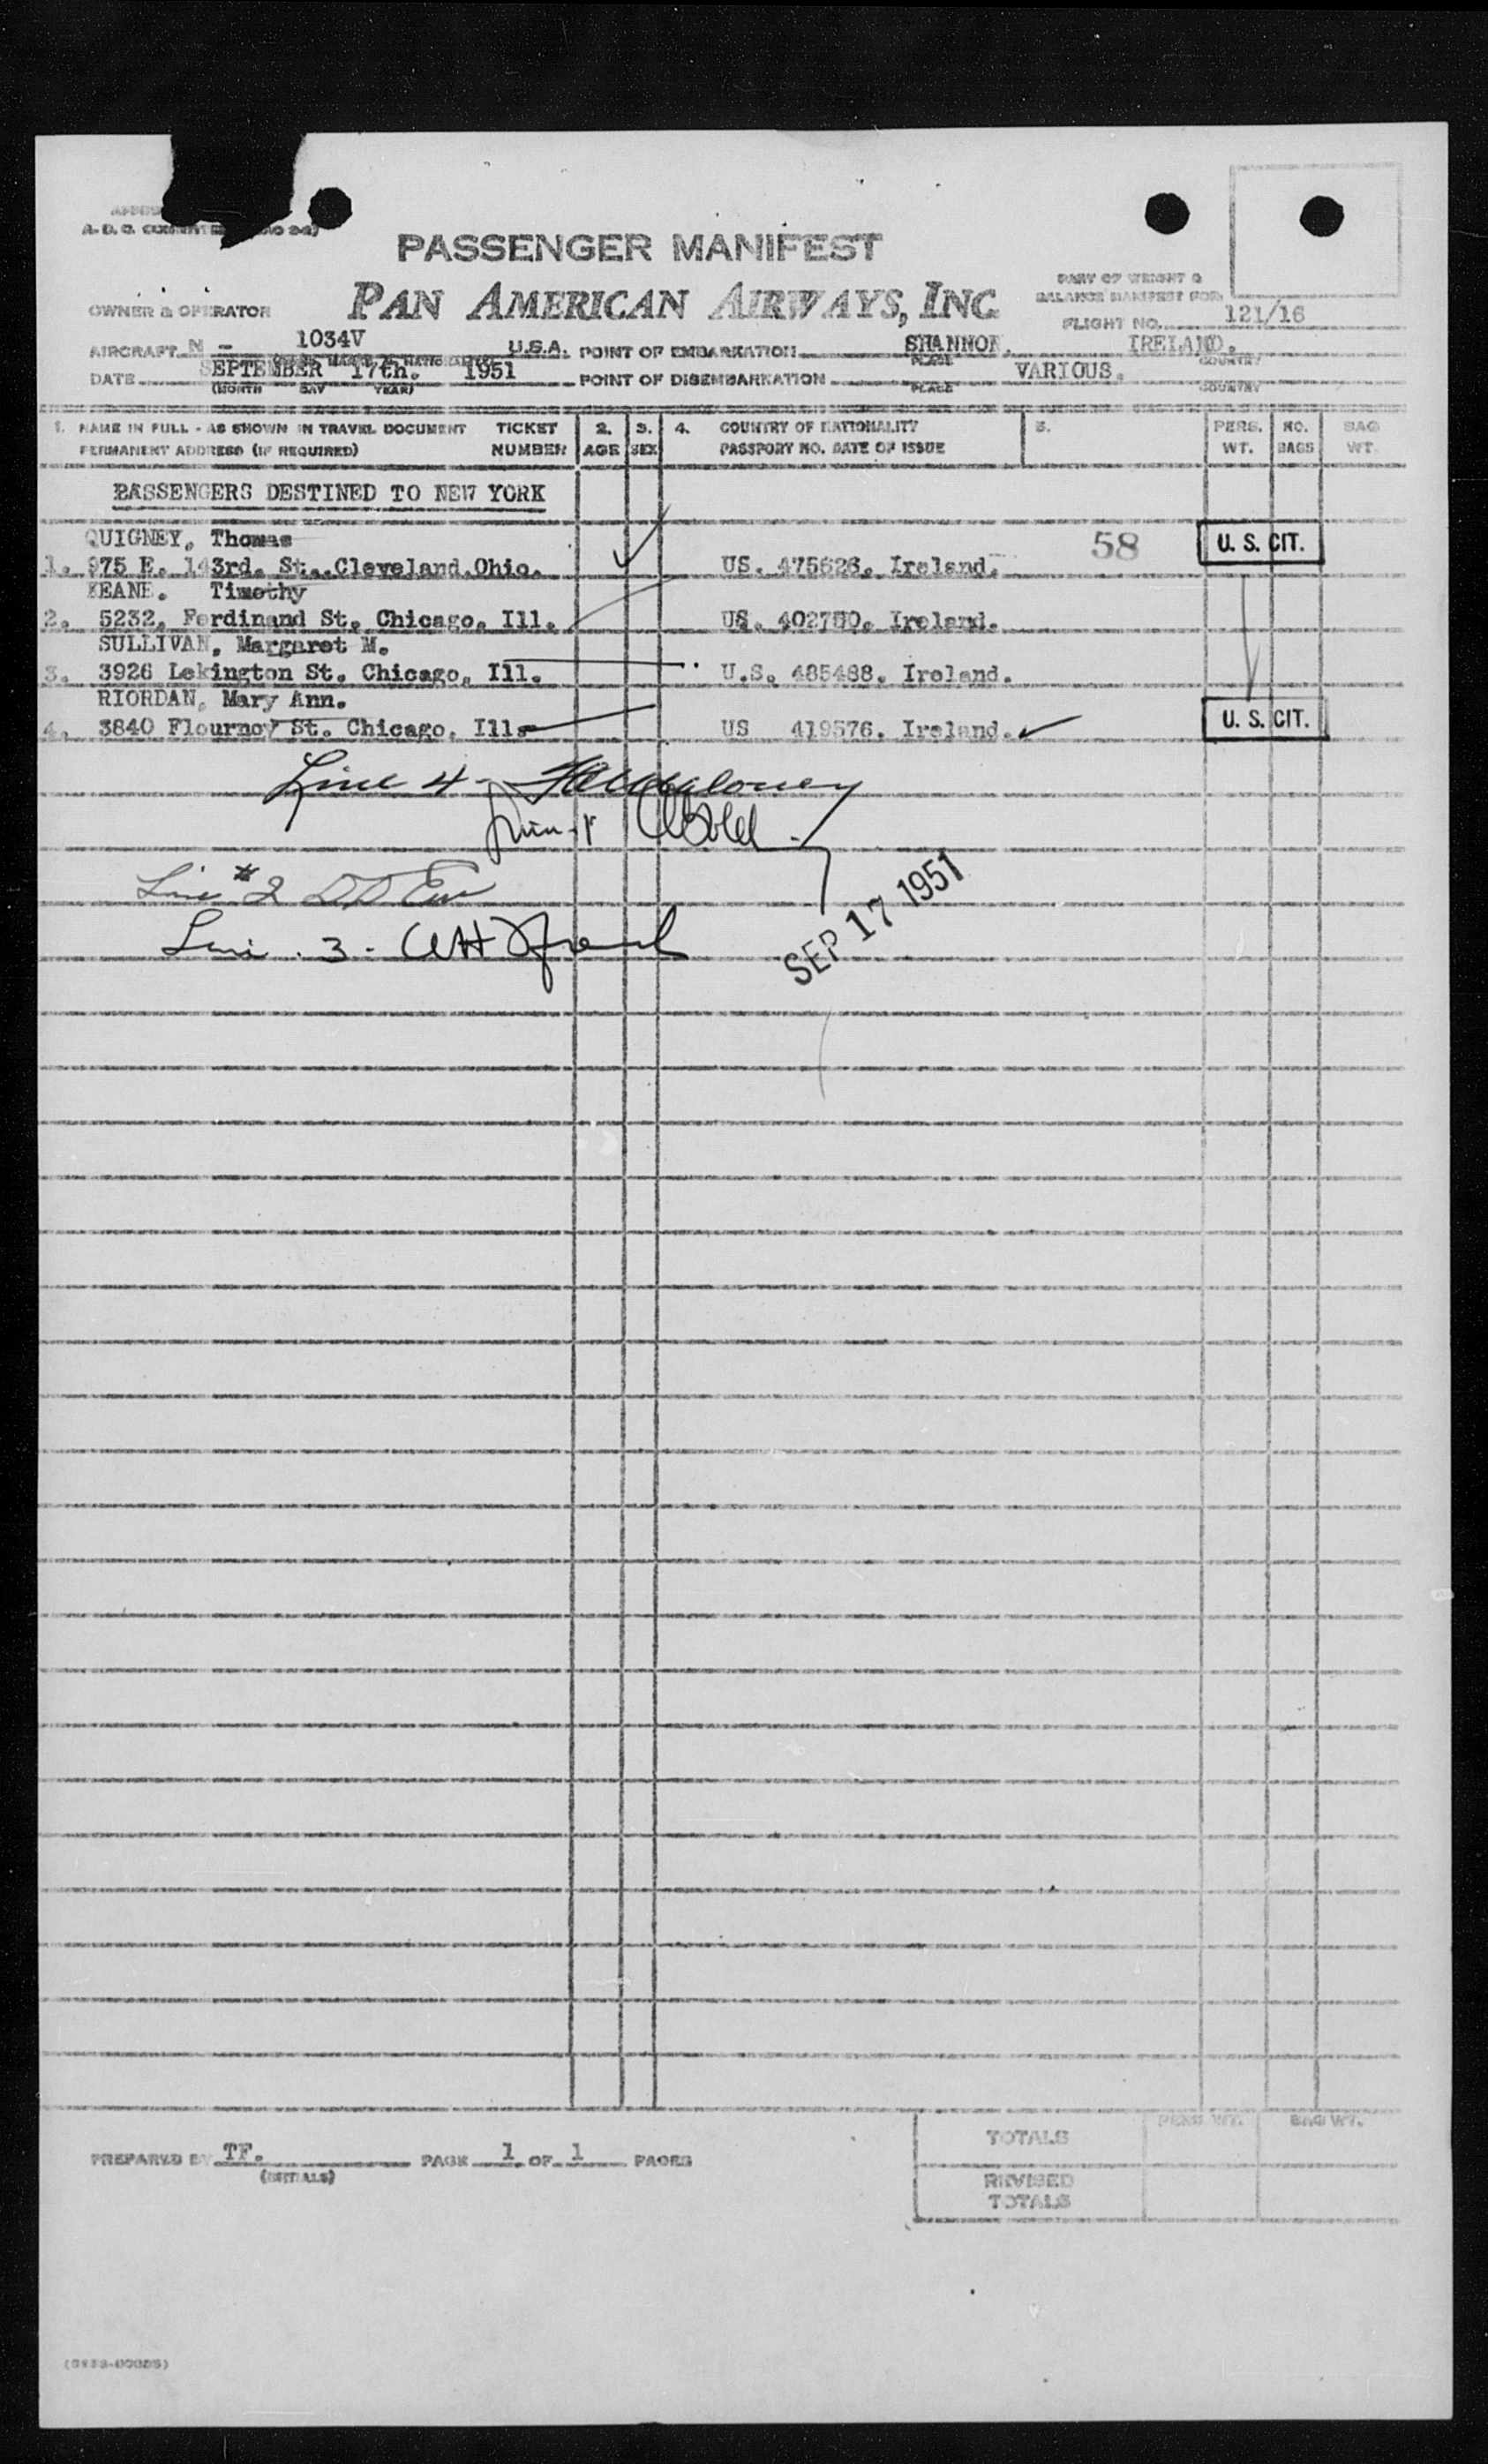 PASSENGER MANIFEST
PAN AMERICAN AIRWAYS, INC
OWNER & OPERATOR
PART OF WEIGHT &
BALANCE MANIFEST FOR
FLIGHT NO. 121/16
AIRCRAFT N - 1034V U.S.A. POINT OF EMBARKATION SHANNON, IRELAND.
PLACE COUNTRY
DATE SEPTEMBER 17th. 1951 POINT OF DISEMBARKATION VARIOUS.
(MONTH DAY YEAR) PLACE COUNTRY
1. NAME IN FULL - AS SHOWN IN TRAVEL DOCUMENT TICKET 2. 3. 4. COUNTRY OF NATIONALITY 5. PERS. NO. BAG
PERMANENT ADDRESS (IF REQUIRED) NUMBER AGE SEX PASSPORT NO. DATE OF ISSUE WT. BAGS WT.
PASSENGERS DESTINED TO NEW YORK
QUIGNEY, Thomas 58 U. S. CIT.
1. 975 E. 143rd. St., Cleveland, Ohio. US. 475626. Ireland.
KEANE. Timothy
2. 5232, Ferdinand St. Chicago, Ill. US. Ireland.
SULLIVAN, Margaret M.
3. 3926 Lekington St. Chicago, Ill. U.S. 485488. Ireland.
RIORDAN, Mary Ann.
4. 3840 Flournoy St. Chicago, Ill. US 419576. Ireland. U. S. CIT.
Line 4 -
Line #2
Line 3 -
SEP 17 1951
PREPARED BY TF. PAGE 1 OF 1 PAGES
(INITIALS)
PERS WT. BAG WT.
TOTALS
REVISED
TOTALS